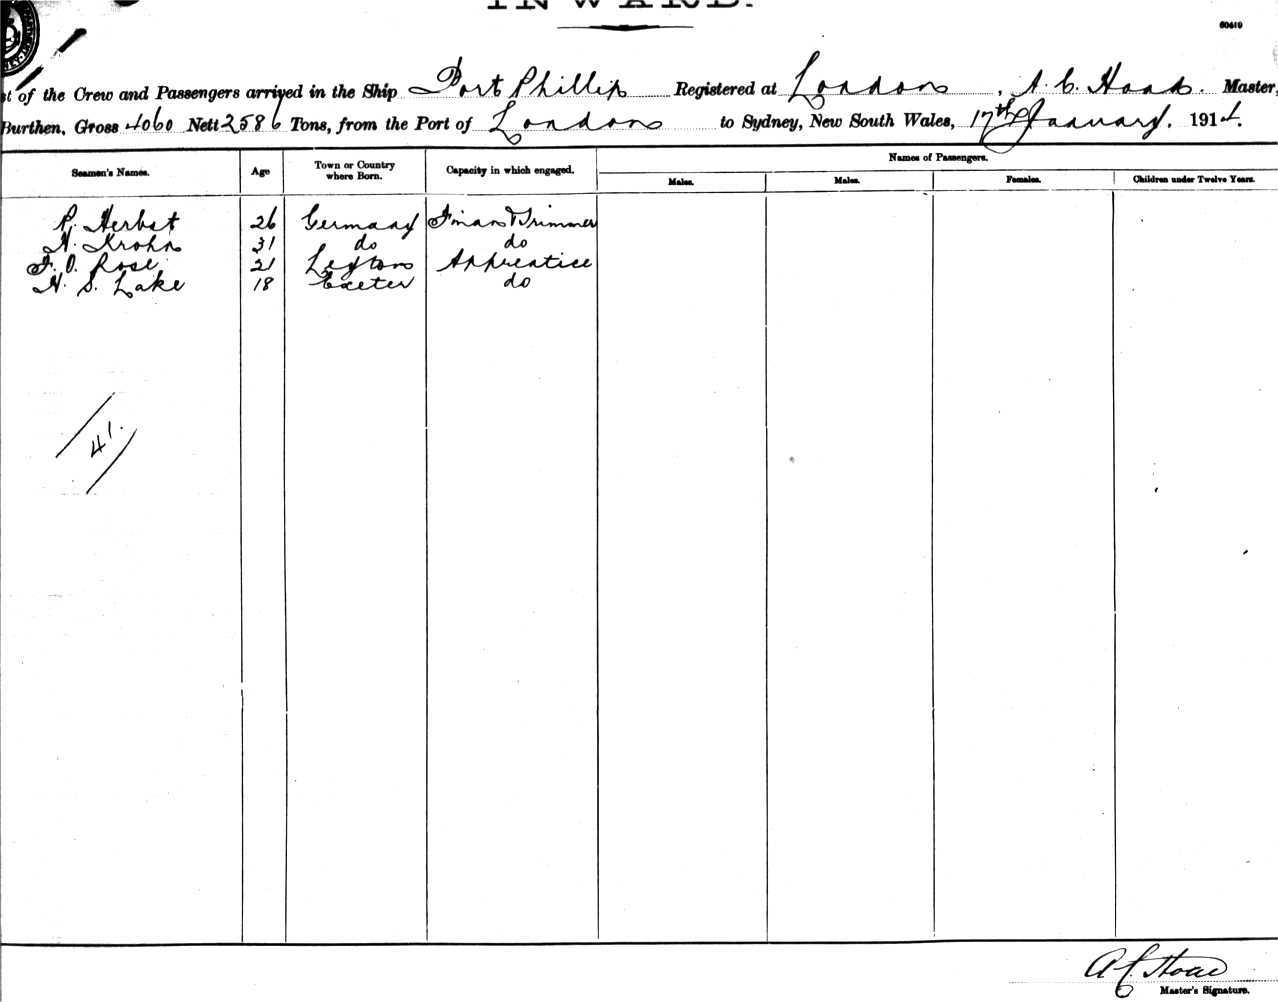 INWARD.
60419
st of the Crew and Passengers arrived in the Ship Port Phillip Registered at London, A. C. Master,
Burthen, Gross 4060 Nett 2586 Tons, from the Port of London to Sydney, New South Wales, 17th January, 1914.
Seamen's Names. Age Town or Country where Born. Capacity in which engaged. Names of Passengers.
Males. Males. Females. Children under Twelve Years.
P. Herbst 26 Germany Fireman & Trimmer
N. Krohn 31 do do
F. O. Rose 21 Leyton Apprentice
H. S. Lake 18 Exeter do
41.
A C
Master's Signature.